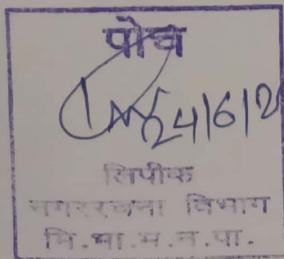 पोच
24/6/2
लिपीक
नगररचना विभाग
मि.भा.म.न.पा.